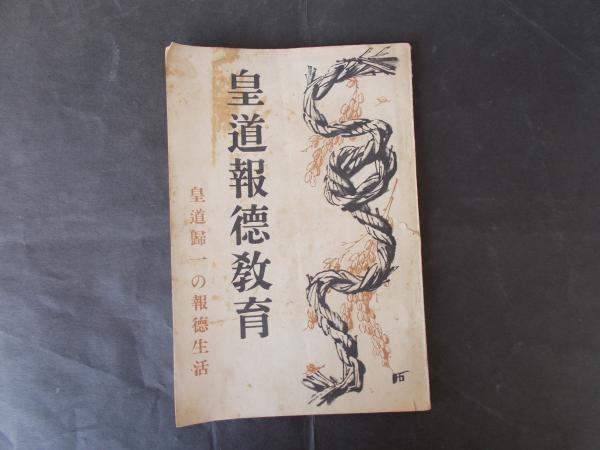 皇道報德敎育
皇道歸一の報德生活